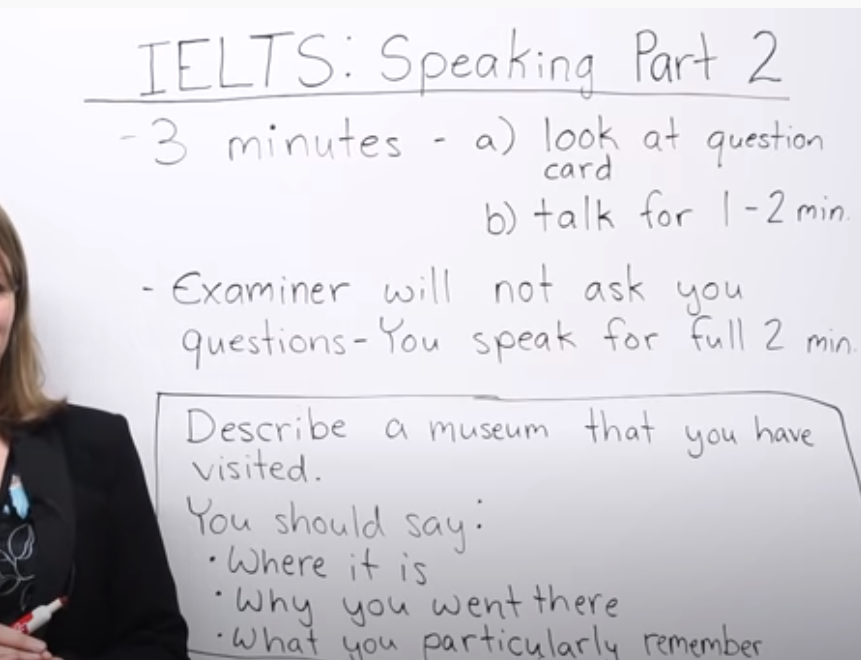 IELTS: Speaking Part 2
- 3 minutes - a) look at question
card
b) talk for 1-2 min.
- Examiner will not ask you
questions - You speak for full 2 min.
Describe a museum that you have
visited.
You should say:
• Where it is
• Why you went there
• What you particularly remember